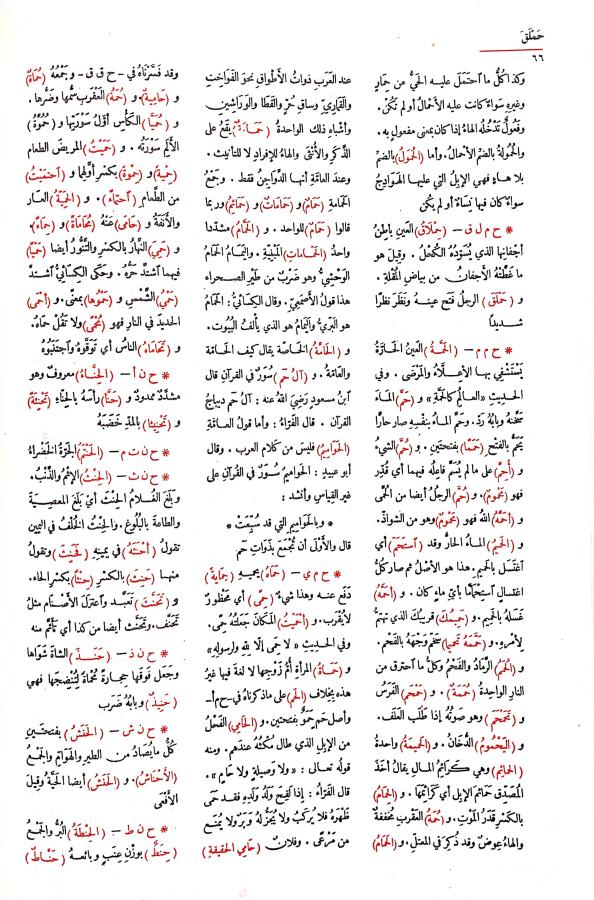 حَمْلَقَ
٦٦
وكذا كُلُّ ما ٱحتَمَل عليه الحَيُّ من حِمارٍ
وغيرِهِ سواءٌ كانت عليه الأَحْمالُ أو لم تَكُنْ.
وفَعُولٌ تَدْخُلُهُ الهاءُ إذا كان بمعنى مفعولٍ به.
والحُمُولةُ بالضمِّ الأحمالُ. وأما (الحُمُولُ) بالضمِّ
بلا هاءٍ فهي الإبِلُ التي عليها الهَوَادِجُ
سواءٌ كان فيها نِساءٌ أو لم يكُنْ
* ح م ل ق – (حِمْلَاقُ) العَيْنِ باطِنُ
أجْفانِها الذي يُسَوِّدُهُ الكُحْلُ. وقيل هو
ما غَطَّتْهُ الأجفانُ من بياضِ المُقْلَةِ.
و (حَمْلَقَ) الرجلُ فَتَح عينَهُ ونَظَر نظرًا
شديدًا
* ح م م – (الحَمَّةُ) العينُ الحَارَّةُ
يَسْتَشْفِي بها الأَعِلَّاءُ والمَرْضَى. وفي
الحديثِ «العالِمُ كالحَمَّةِ» و (حَمَّ) المَاءَ
سَخَّنَهُ وبابُهُ رَدّ. وحَمَّ الماءُ بنفسِهِ صار حارًّا
يَحَمُّ بالفتح (حَمَمًا) بفتحتين. و (حُمَّ) الشيءُ
و (أُحِمَّ) على ما لم يُسَمَّ فاعِلُهُ فيهما أي قُدِّر
فهو (مَحْمُومٌ). و (حُمَّ) الرجلُ أيضا من الحُمَّى
و (أَحَمَّهُ) اللهُ فهو (مَحْمُومٌ) وهو من الشَواذِّ.
و (الحَمِيمُ) الماءُ الحارُّ وقد (ٱستَحَمَّ) أي
ٱغْتَسَل بالحَمِيم. هذا هو الأصْلُ ثم صار كلُّ
ٱغتِسالٍ ٱستِحْمامًا بأَيّ ماءٍ كان. و (أَحَمَّهُ)
غَسَلَهُ بالحَميمِ. و (حَمِيمُكَ) قريبُكَ الذي تهتمُّ
لِأَمْرِهِ. و (حَمَّمَهُ تَحْميما) سَخَّم وَجْهَهُ بالفَحْمِ.
و (الحُمَمُ) الرَّمادُ والفَحْمُ وكلُّ ما ٱحترق من
النار الواحِدةُ (حُمَمَةٌ). و (حَمْحَمَ) الفَرَسُ
و (تَحَمْحَمَ) وهو صَوْتُهُ إذا طَلَب العَلَفَ.
و (اليَحْمُومُ) الدُّخَانُ. و (الحَمِيمةُ) واحدةُ
(الحَمائِمِ) وهي كرائِمُ المالِ يقال أخَذَ
المُصَدِّقُ حَمائِمَ الإبلِ أي كَرائِمَها. و (الحِمَامُ)
بالكَسْرِ قَدَرُ المَوْتِ. و (حُمَةُ) العَقْرَبِ مُخَفَّفةٌ
والهاءُ عِوَضٌ وقد ذُكِرَ في المعتلّ. و (الحَمَامُ)
عند العَرَبِ ذواتُ الأَطْواقِ نحو الفَواخِتِ
والقَمَارِيّ وساقِ حُرٍّ والقَطَا والوَرَاشينِ
وأشباهِ ذلك الواحدةُ (حَمَامَةٌ) يَقَعُ على
الذَّكَرِ والأُنْثَى والهاءُ للإفرادِ لا للتأنيث.
وعند العامَّةِ أنها الدَّواجنُ فقط. وجَمْعُ
الحَمامةِ (حَمَامٌ) و (حَمَاماتٌ) و (حَمائِمُ) وربما
قالوا (حَمَامٌ) للواحد. و (الحَمَّامُ) مشدَّدا
واحدُ (الحَمَّاماتِ) المَبْنِيَّةِ. واليَمَامُ الحَمَامُ
الوَحْشِيُّ وهو ضَرْبٌ من طَيْرِ الصحراء
هذا قولُ الأَصْمَعِيِّ. وقال الكِسَائيُّ: الحَمَامُ
هو البَرِّيُّ واليَمَامُ هو الذي يأْلَفُ البُيُوت.
و (الحَامَّةُ) الخَاصَّةُ يقال كيف الحَامَّة
والعامَّةُ. و (آلُ حٰم) سُوَرٌ في القرآنِ قال
ابنُ مسعودٍ رَضِيَ اللهُ عنه: آلُ حم دِيباجُ
القرآنِ. قال الفَرَّاءُ: وأما قولُ العامَّةِ
(الحَوَاميمُ) فليسَ من كلام العرب. وقال
أبو عبيدٍ: الحَواميمُ سُوَرٌ في القرآن على
غيرِ القياسِ وأنشد:
* وبالحَوَاميمِ التي قد سُبِّعَتْ *
قال والأَوْلَى أن تُجْمَعَ بذَوَاتِ حٰم
* ح م ي – (حَمَاهُ) يحميهِ (حِمايةً)
دَفَع عنه وهذا شيءٌ (حِمًى) أي مَحْظُورٌ
لا يُقْرَب. و (أَحْمَيْتُ) المَكانَ جَعَلْتُهُ حِمًى.
وفي الحديثِ «لا حِمَى إلَّا لِلهِ ولرسولِهِ»
و (حَمَاةُ) المرأةِ أُمُّ زَوْجِها لا لغةَ فيها غيرُ
هذه بخلافِ (الحَمِ) على ما ذكرناهُ في – ح م أ –
وأصلُ حَمٍ حَمَوٌ بفتحتين. و (الحامِي) الفَحْلُ
من الإبلِ الذي طال مُكْثُهُ عندهم. ومنه
قولُه تعالى: «ولا وَصِيلةٍ ولا حَامٍ».
قال الفَرَّاءُ: إذا لَقِحَ وَلَدُ وَلَدِهِ فقد حَمَى
ظَهْرَهُ فلا يُرْكَبُ ولا يُجَزُّ لهُ وَبَرٌ ولا يُمْنَعُ
من مَرْعًى. وفلانٌ (حامِي الحَقِيقةِ)
وقد فَسَّرْنَاهُ في – ح ق ق – وجَمْعُهُ (حُمَاةٌ)
و (حامِيةٌ). و (حُمَةُ) العَقْربِ سمُّها وضَرُّها.
و (حُمَيَّا) الكَأْسِ أوّلُ سَوْرَتِها و (حُمُوَّةُ)
الأَلَمِ سَوْرَتُهُ. و (حَمَيْتُ) المريضَ الطعامَ
(حِمْيةً) و (حِمْوةً) بكسرِ أوّلِهما و (ٱحتَمَيْتُ)
من الطَّعامِ (ٱحتِماءً). و (الحَمِيَّةُ) العارُ
والأَنَفَةُ و (حامَى) عَنْهُ (مُحاماةً) و (حِماءً).
و (حَمِيَ) النَّهارُ بالكسرِ والتَّنُّورُ أيضا (حَمْيًا)
فيهما ٱشتدَّ حَرُّهُ. وحَكَى الكِسائيُّ ٱشتدَّ
(حَمْيُ) الشَّمْسِ و (حَمْوُها) بمعنًى. و (أَحْمَى)
الحديدَ في النارِ فهو (مُحْمًى) ولا تَقُلْ حَمَاهُ.
و (تَحَامَاهُ) الناسُ أي تَوَقَّوْهُ وٱجتَنَبُوهُ
* ح ن أ – (الحِنَّاءُ) معروفٌ وهو
مشدَّدٌ ممدودٌ و (حَنَّأَ) رأسَهُ بالحِنَّاءِ (تَحْنِئةً)
و (تَحْنِيئًا) بالمدِّ خَضَبَهُ
* ح ن ت م – (الحَنْتَمُ) الجَرَّةُ الخَضْراءُ
* ح ن ث – (الحِنْثُ) الإثمُ والذَّنْبُ.
وبَلَغ الغُلامُ الحِنْثَ أيْ بَلَغَ المَعصِيةَ
والطاعةَ بالبُلُوغِ. والحِنْثُ الخُلْفُ في اليمين
تقولُ (أَحْنَثَهُ) في يمينِهِ (فَحَنِثَ) وتقولُ
منهما (حَنِثَ) بالكسرِ (حِنْثًا) بكسرِ الحاء.
و (تَحَنَّثَ) تَعَبَّد وٱعتزَلَ الأَصْنامَ مثلُ
تَحَنَّف. وتَحَنَّثَ أيضا من كذا أي تَأَثَّم منه
* ح ن ذ – (حَنَذَ) الشاةَ شَوَاها
وجَعَل فَوقَها حِجارةً مُحْمَاةً لِتُنْضِجَها فهي
(حَنِيذٌ) وبابُهُ ضَرَب
* ح ن ش – (الحَنَشُ) بفتحتين
كلُّ ما يُصَادُ من الطيرِ والهَوَامِّ والجَمْعُ
(الأَحْنَاشُ). و (الحَنَشُ) أيضا الحيَّةُ وقيلَ
الأَفْعَى
* ح ن ط – (الحِنْطَةُ) البُرُّ والجَمْعُ
(حِنَطٌ) بوزنِ عِنَبٍ وبائعُهُ (حَنَّاطٌ)